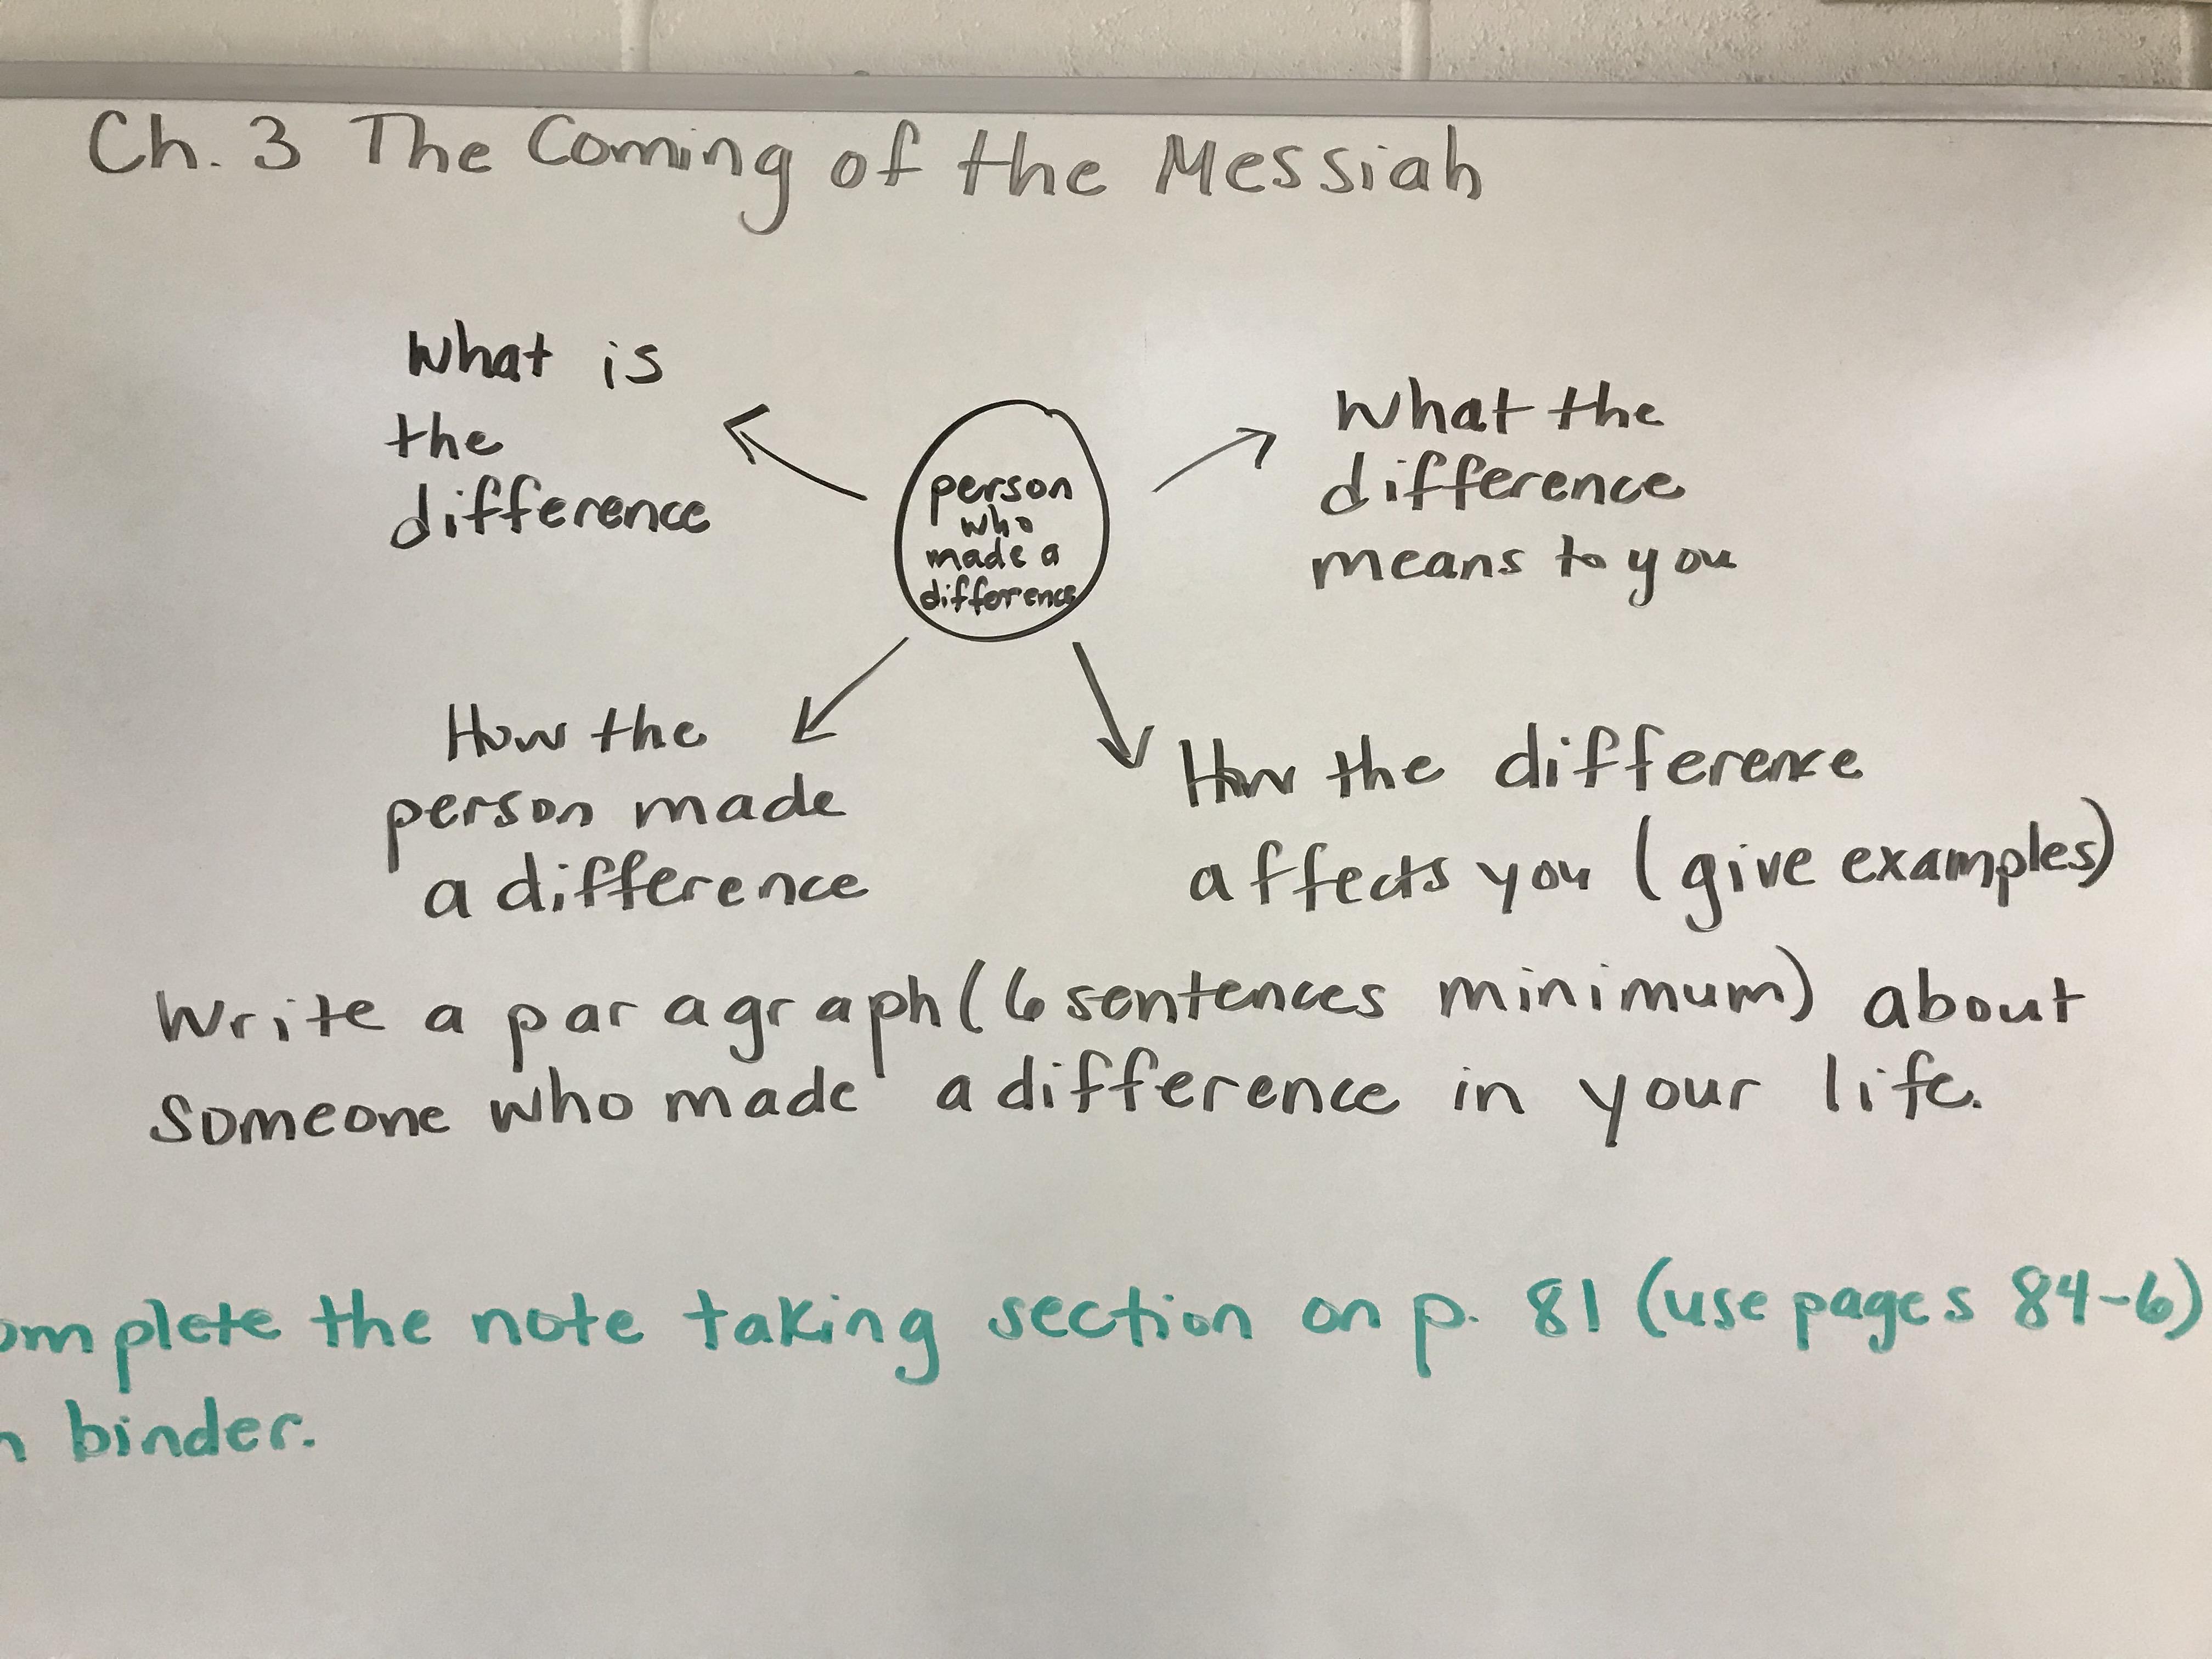 Ch. 3 The Coming of the Messiah
What is
the
difference
person
who
made a
difference
What the
difference
means to you
How the
person made
a difference
How the difference
affects you (give examples)
Write a paragraph (6 sentences minimum) about
someone who made a difference in your life.
omplete the note taking section on p. 81 (use pages 84-6)
n binder.